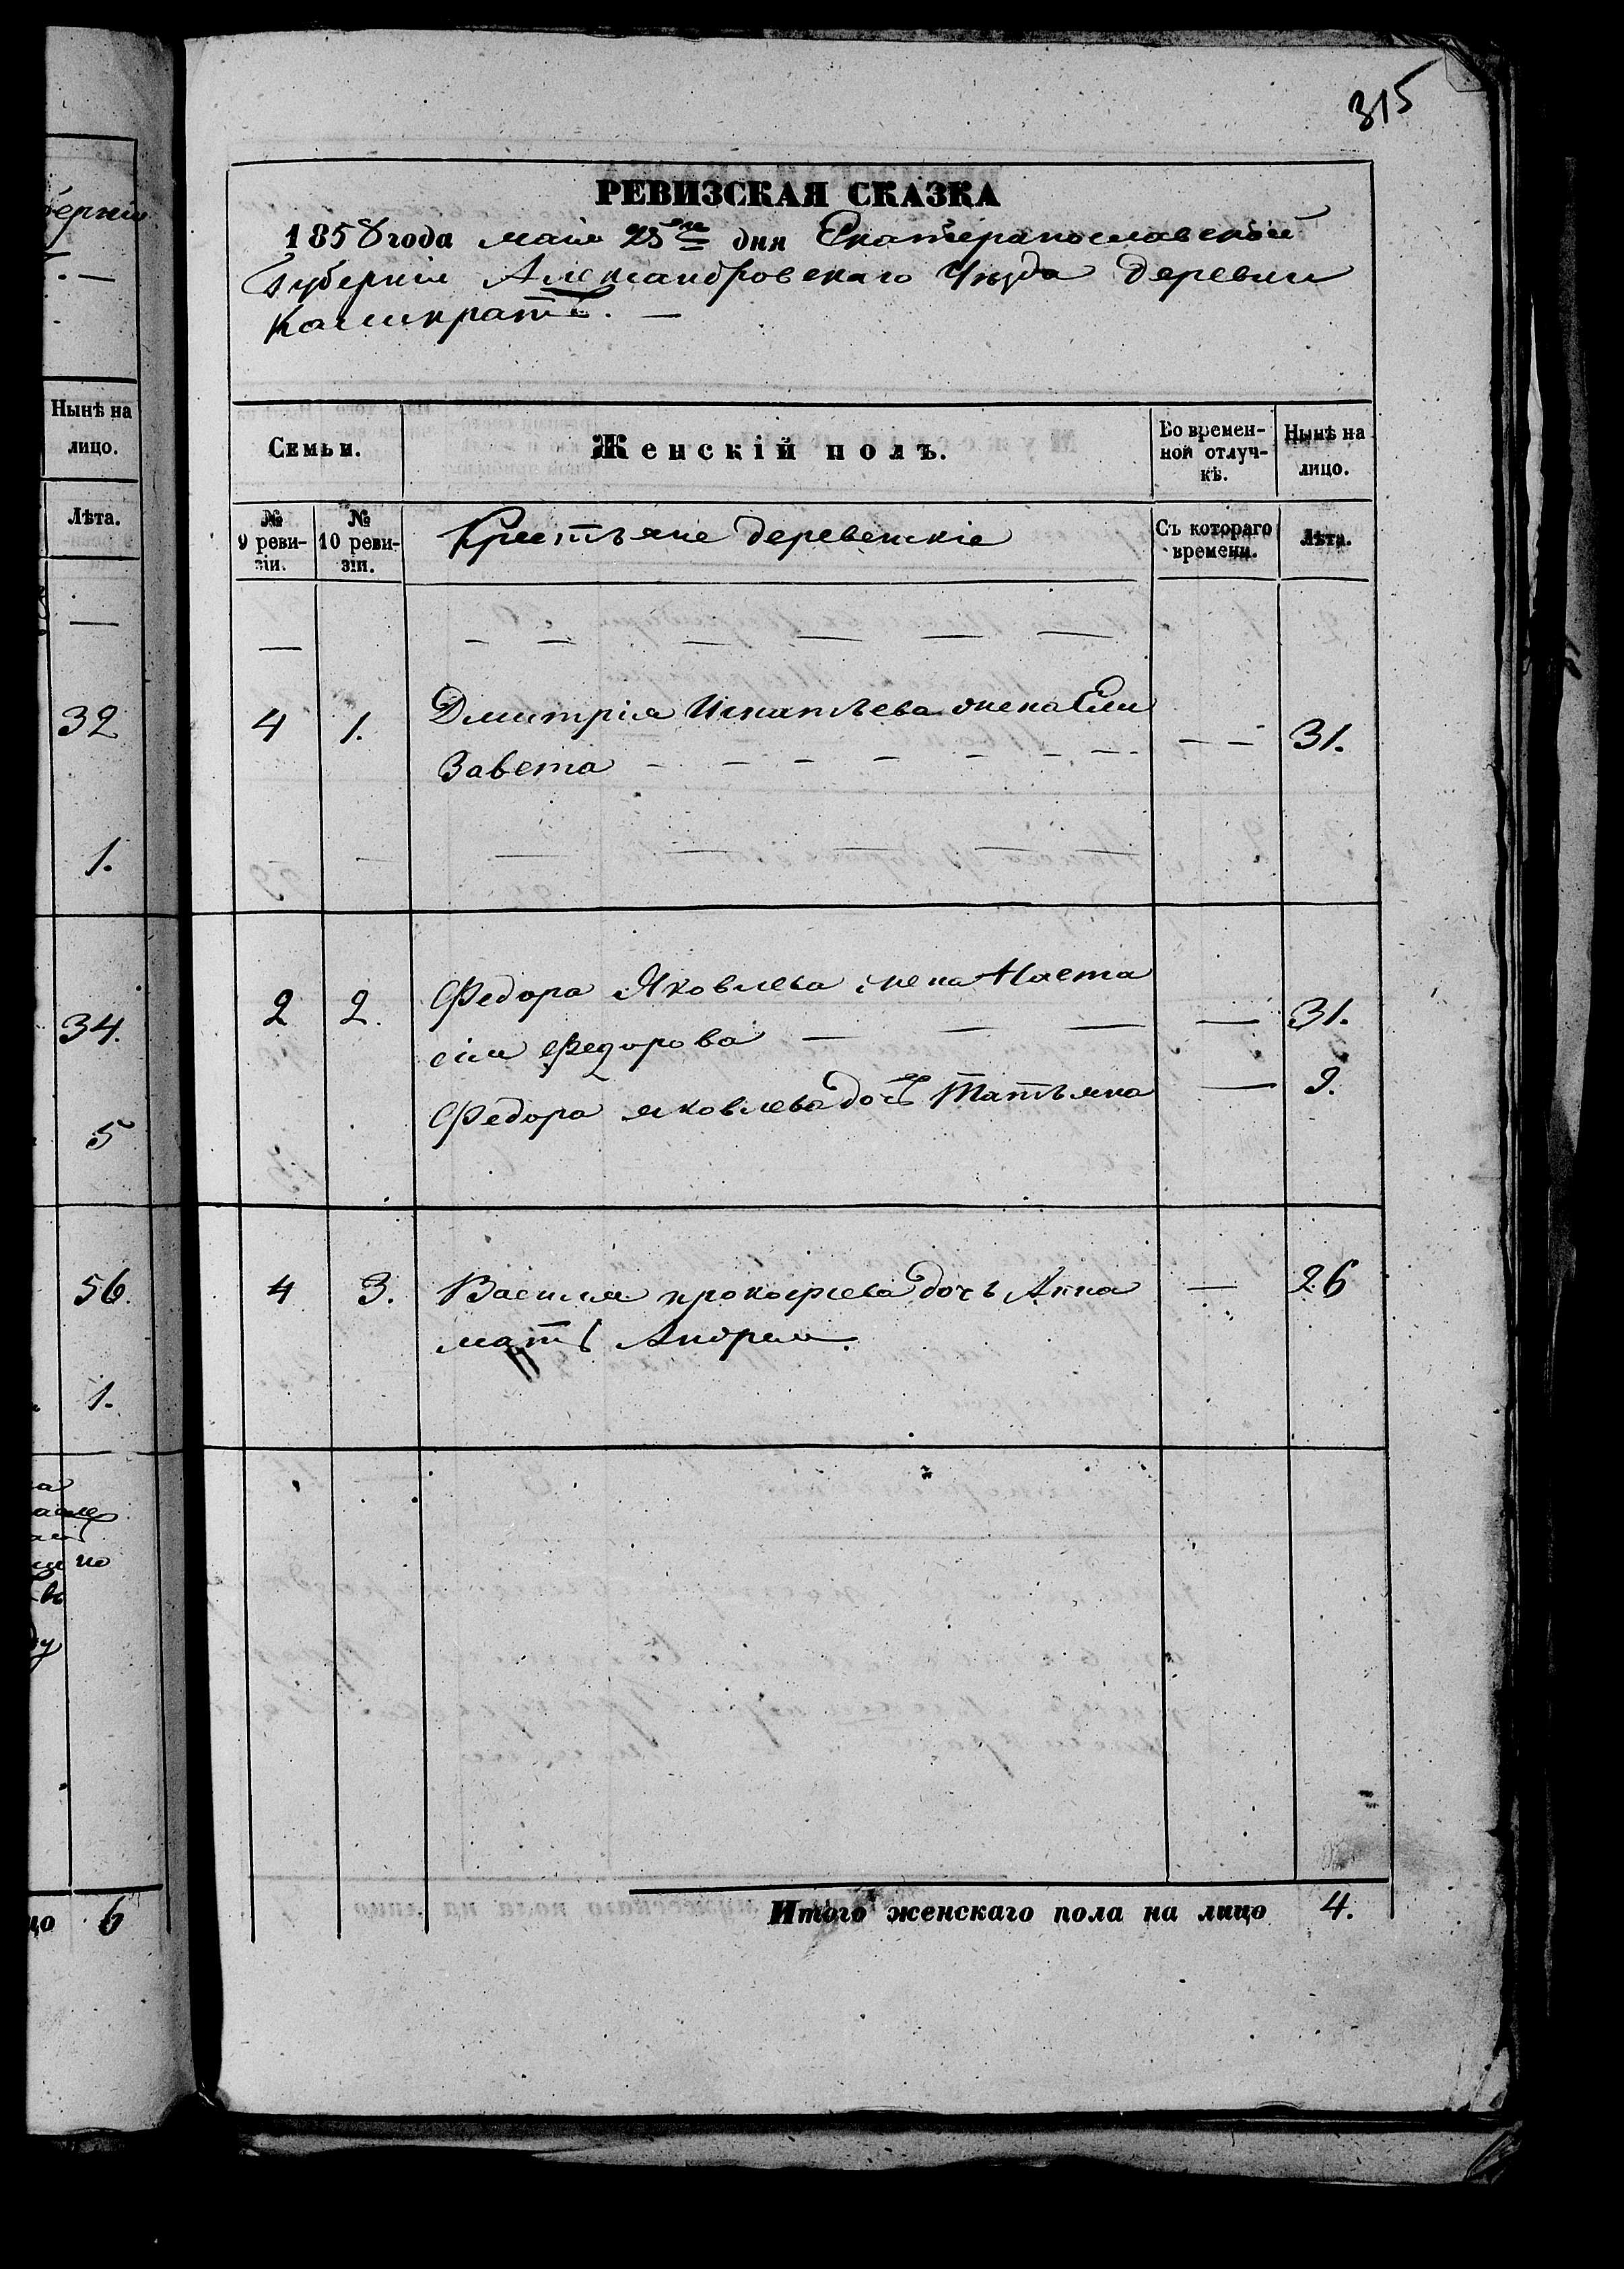 315
РЕВИЗСКАЯ СКАЗКА
1858 года маія 25го дня Екатеринославской
Губерніи Александровскаго Уѣзда деревни
Каликратъ. —
Семьи.
Женскій полъ.
Во времен-
ной отлуч-
кѣ.
Нынѣ на
лицо.
№
9 реви-
зіи.
№
10 реви-
зіи.
Крестьяне деревенскіе
Съ котораго
времени.
Лѣта.
4 1. Дмитрія Игнатьева жена Ели
завета — — 31.
2 2. Федора Яковлева жена Наста
сія Федорова — 31.
Федора яковлева дочь Татьяна — 9.
4 3. Василія прокофьева дочь Анна — 26
мать Андрея.
Итого женскаго пола на лицо 4.
берніи
Нынѣ на
лицо.
Лѣта.
32
1.
34.
5
56.
1.
по
въ
цо 6